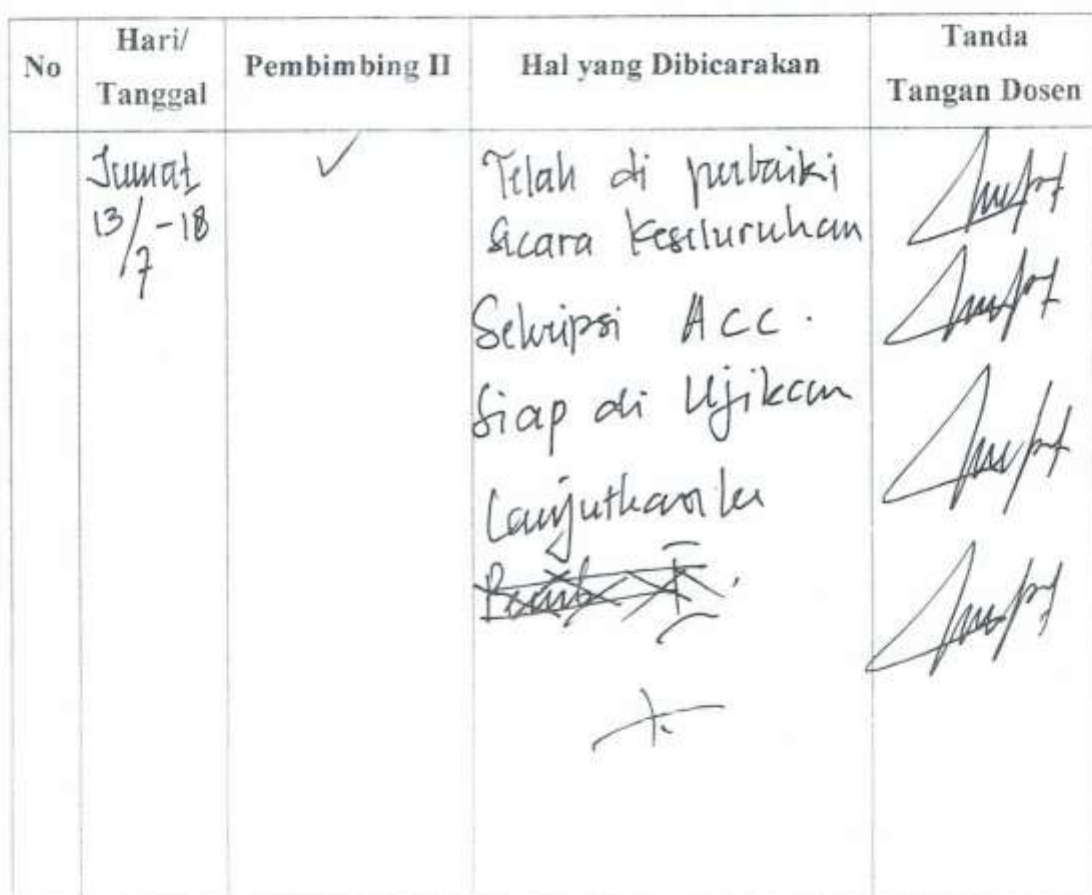 No Hari/ Tanggal Pembimbing II Hal yang Dibicarakan Tanda Tangan Dosen
Jumat ✓ Telah di perbaiki
13/7-18 secara Keseluruhan
Sekripsi ACC.
Siap di Ujikan
Lanjutkan ke
Pemb I.